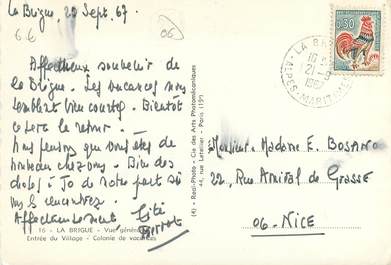 La Brigue, 20 Sept. 67
66
06
Affectueux souvenir de
La Brigue. Les vacances nous
semblent bien courtes. Bientôt
ce sera le retour.
Nous pensons que vous êtes de
nouveau chez vous. Bien des
choses à Jo de notre part si
vous le rencontrez.
Affectueusement
16 - LA BRIGUE - Vue générale
Entrée du Village - Colonie de vacances
(R) - Real-Photo - Cie des Arts Photomécaniques
44, rue Letellier - Paris (15e)
0,50
LA BRIGUE
21-9
1967
ALPES-MARITIMES
Monsieur Madame E. Bosano
22, Rue Amiral de Grasse
06 - NICE